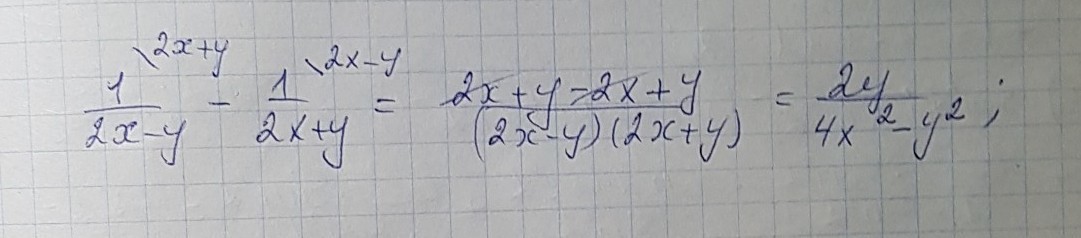 \frac{1^{\backslash 2x+y}}{2x-y} - \frac{1^{\backslash 2x-y}}{2x+y} = \frac{2x+y-2x+y}{(2x-y)(2x+y)} = \frac{2y}{4x^2-y^2};